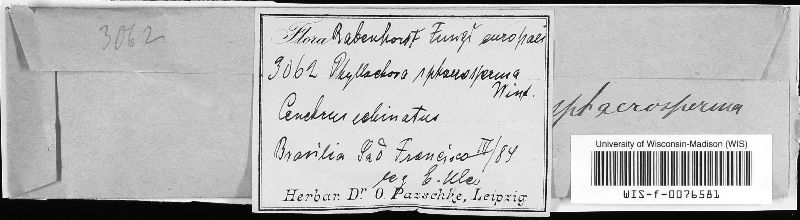 3062
Flora Rabenhorst Fungi europaei
3062 Phyllachora sphaerosperma
Wint.
Cenchrus echinatus
Brasilia Saõ Francisco IV/84
leg E. Ule
Herbar. Dr. O. Pazschke, Leipzig
sphaerosperma
University of Wisconsin-Madison (WIS)
WIS-f-0076581